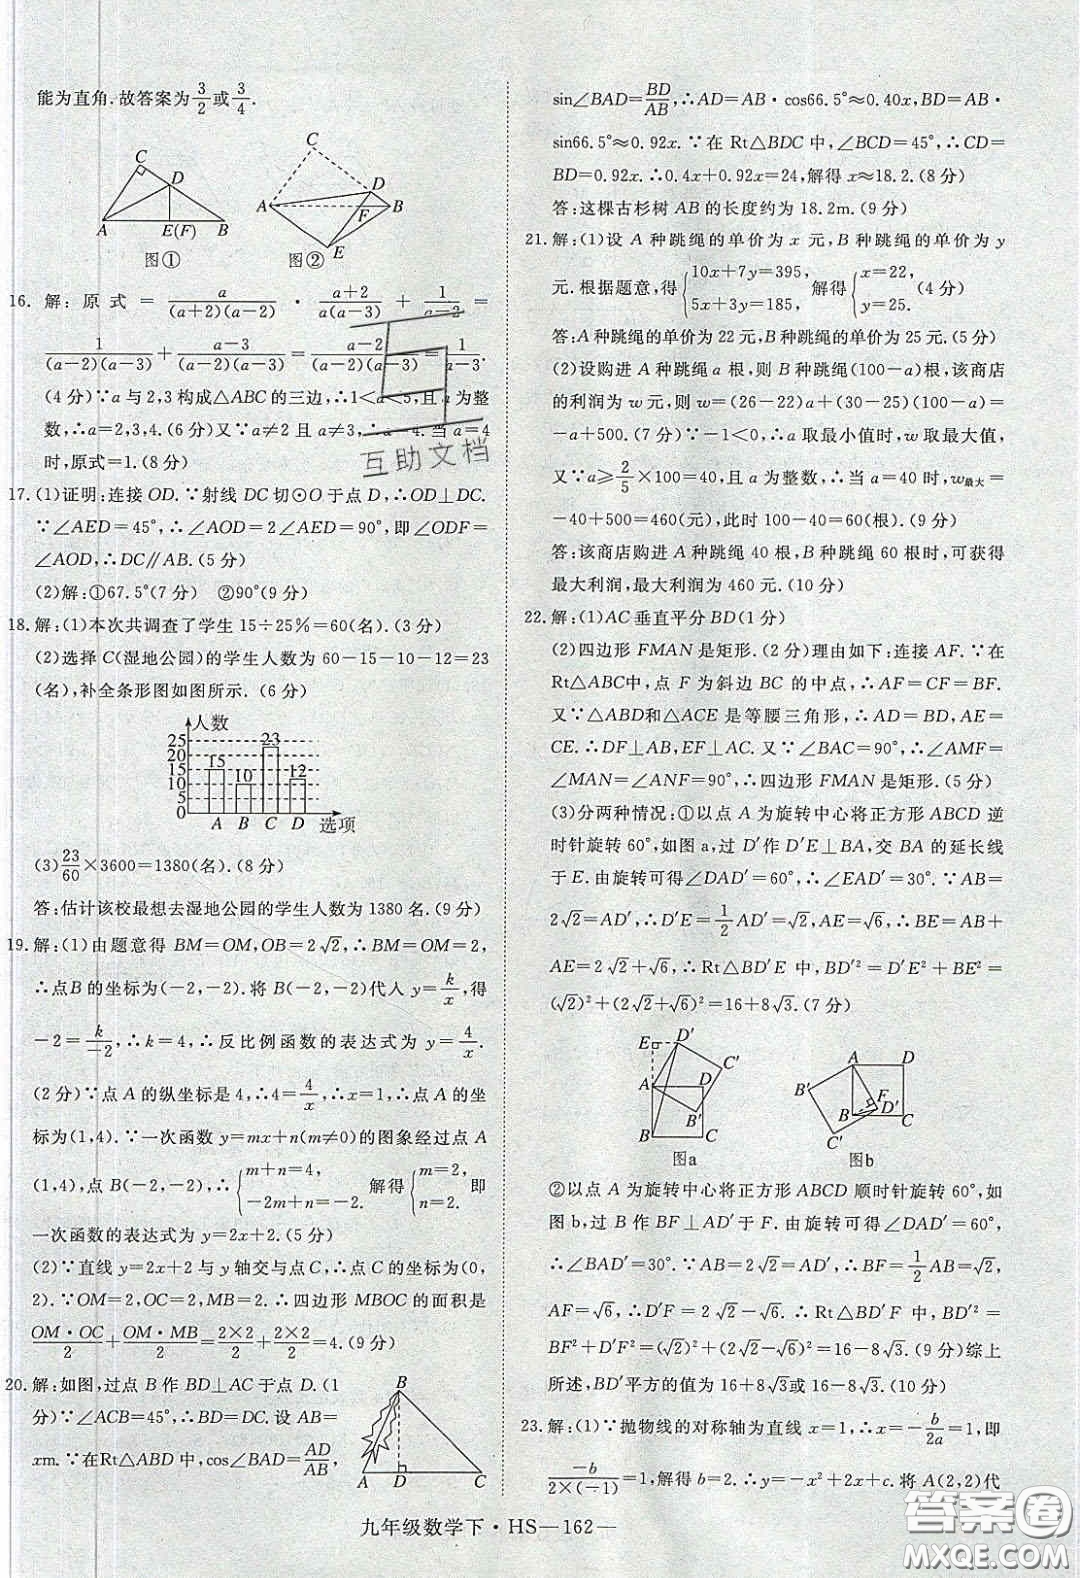 能为直角.故答案为3/2或3/4.
C
D
A E(F) B
图①
C
D
A F B
E
图②
16. 解:原式=a/((a+2)(a-2))·(a+2)/(a(a-3))+1/(a-2)=
1/((a-2)(a-3))+(a-3)/((a-2)(a-3))=(a-2)/((a-2)(a-3))=1/(a-3).
(4分)∵a与2,3构成△ABC的三边,∴1<a<5,且a为整
数,∴a=2,3,4.(6分)又∵a≠2且a≠3,∴a=4.当a=4
时,原式=1.(8分)
互助文档
17.(1)证明:连接OD.∵射线DC切⊙O于点D,∴OD⊥DC.
∵∠AED=45°,∴∠AOD=2∠AED=90°,即∠ODF=
∠AOD,∴DC∥AB.(5分)
(2)解:①67.5°(7分) ②90°(9分)
18.解:(1)本次共调查了学生15÷25%=60(名).(3分)
(2)选择C(湿地公园)的学生人数为60-15-10-12=23
(名),补全条形图如图所示.(6分)
人数
25
20
15
10
5
0
15 10 23 12
A B C D 选项
(3)23/60×3600=1380(名).(8分)
答:估计该校最想去湿地公园的学生人数为1380名.(9分)
19.解:(1)由题意得BM=OM,OB=2√2,∴BM=OM=2,
∴点B的坐标为(-2,-2).将B(-2,-2)代人y=k/x,得
-2=k/-2,∴k=4,∴反比例函数的表达式为y=4/x.
(2分)∵点A的纵坐标是4,∴4=4/x,∴x=1,∴点A的坐
标为(1,4).∵一次函数y=mx+n(m≠0)的图象经过点A
(1,4),点B(-2,-2),∴{m+n=4, -2m+n=-2.解得{m=2, n=2.即
一次函数的表达式为y=2x+2.(5分)
(2)∵直线y=2x+2与y轴交与点C,∴点C的坐标为(0,
2).∵OM=2,OC=2,MB=2.∴四边形MBOC的面积是
OM·OC/2+OM·MB/2=2×2/2+2×2/2=4.(9分)
20.解:如图,过点B作BD⊥AC于点D.(1
分)∵∠ACB=45°,∴BD=DC.设AB=
xm.∵在Rt△ABD中,cos∠BAD=AD/AB,
B
A D C
sin∠BAD=BD/AB,∴AD=AB·cos66.5°≈0.40x,BD=AB·
sin66.5°≈0.92x.∵在Rt△BDC中,∠BCD=45°,∴CD=
BD=0.92x.∴0.4x+0.92x=24,解得x≈18.2.(8分)
答:这棵古杉树AB的长度约为18.2m.(9分)
21.解:(1)设A种跳绳的单价为x元,B种跳绳的单价为y
元.根据题意,得{10x+7y=395, 5x+3y=185,解得{x=22, y=25.(4分)
答:A种跳绳的单价为22元,B种跳绳的单价为25元.(5分)
(2)设购进A种跳绳a根,则B种跳绳(100-a)根,该商店
的利润为w元,则w=(26-22)a+(30-25)(100-a)=
-a+500.(7分)∵-1<0,∴a取最小值时,w取最大值,
又∵a⩾2/5×100=40,且a为整数,∴当a=40时,w最大=
-40+500=460(元),此时100-40=60(根).(9分)
答:该商店购进A种跳绳40根,B种跳绳60根时,可获得
最大利润,最大利润为460元.(10分)
22.解:(1)AC垂直平分BD(1分)
(2)四边形FMAN是矩形.(2分)理由如下:连接AF.∵在
Rt△ABC中,点F为斜边BC的中点,∴AF=CF=BF.
又∵△ABD和△ACE是等腰三角形,∴AD=BD,AE=
CE.∴DF⊥AB,EF⊥AC.又∵∠BAC=90°,∴∠AMF=
∠MAN=∠ANF=90°,∴四边形FMAN是矩形.(5分)
(3)分两种情况:①以点A为旋转中心将正方形ABCD逆
时针旋转60°,如图a,过D′作D′E⊥BA,交BA的延长线
于E.由旋转可得∠DAD′=60°,∴∠EAD′=30°.∵AB=
2√2=AD′,∴D′E=1/2AD′=√2,AE=√6,∴BE=AB+
AE=2√2+√6,∴Rt△BD′E中,BD′²=D′E²+BE²=
(√2)²+(2√2+√6)²=16+8√3.(7分)
E D′
C′
A D
B′
B C
图a
A D
B′
F
B D′
C′ C
图b
②以点A为旋转中心将正方形ABCD顺时针旋转60°,如
图b,过B作BF⊥AD′于F.由旋转可得∠DAD′=60°,
∴∠BAD′=30°.∵AB=2√2=AD′,∴BF=1/2AB=√2,
AF=√6,∴D′F=2√2-√6,∴Rt△BD′F中,BD′²=
BF²+D′F²=(√2)²+(2√2-√6)²=16-8√3.(9分)综上
所述,BD′平方的值为16+8√3或16-8√3.(10分)
23.解:(1)∵抛物线的对称轴为直线x=1,∴x=-b/2a=1,即
-b/(2×(-1))=1,解得b=2.∴y=-x²+2x+c.将A(2,2)代
九年级数学下·HS—162—
答案圈
MXQE.COM